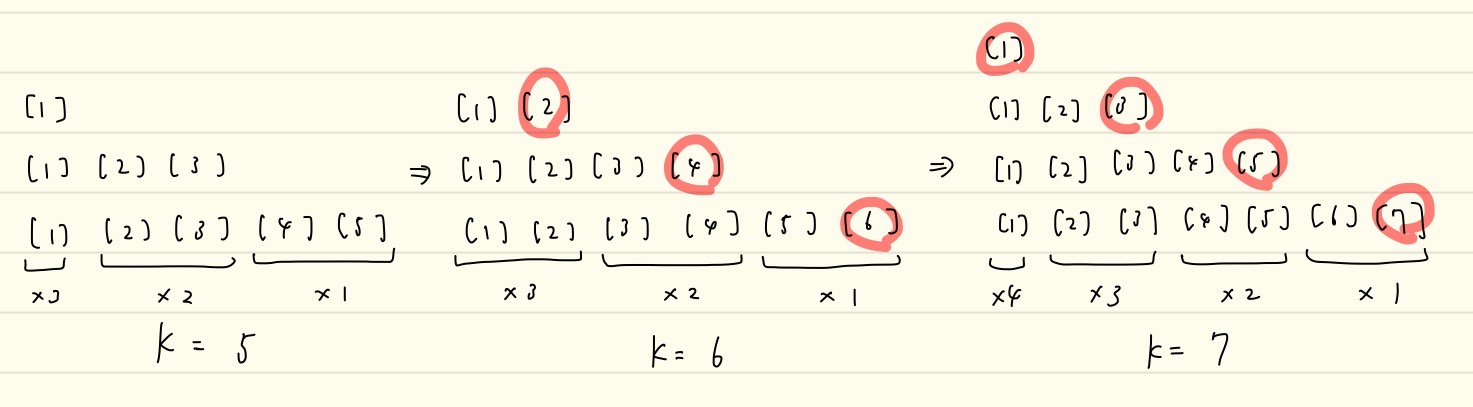 [1]
[1] [2] [3]
[1] [2] [3] [4] [5]
×3 ×2 ×1
k = 5
⇒
[1] [2]
[1] [2] [3] [4]
[1] [2] [3] [4] [5] [6]
×3 ×2 ×1
k = 6
⇒
[1]
[1] [2] [3]
[1] [2] [3] [4] [5]
[1] [2] [3] [4] [5] [6] [7]
×4 ×3 ×2 ×1
k = 7